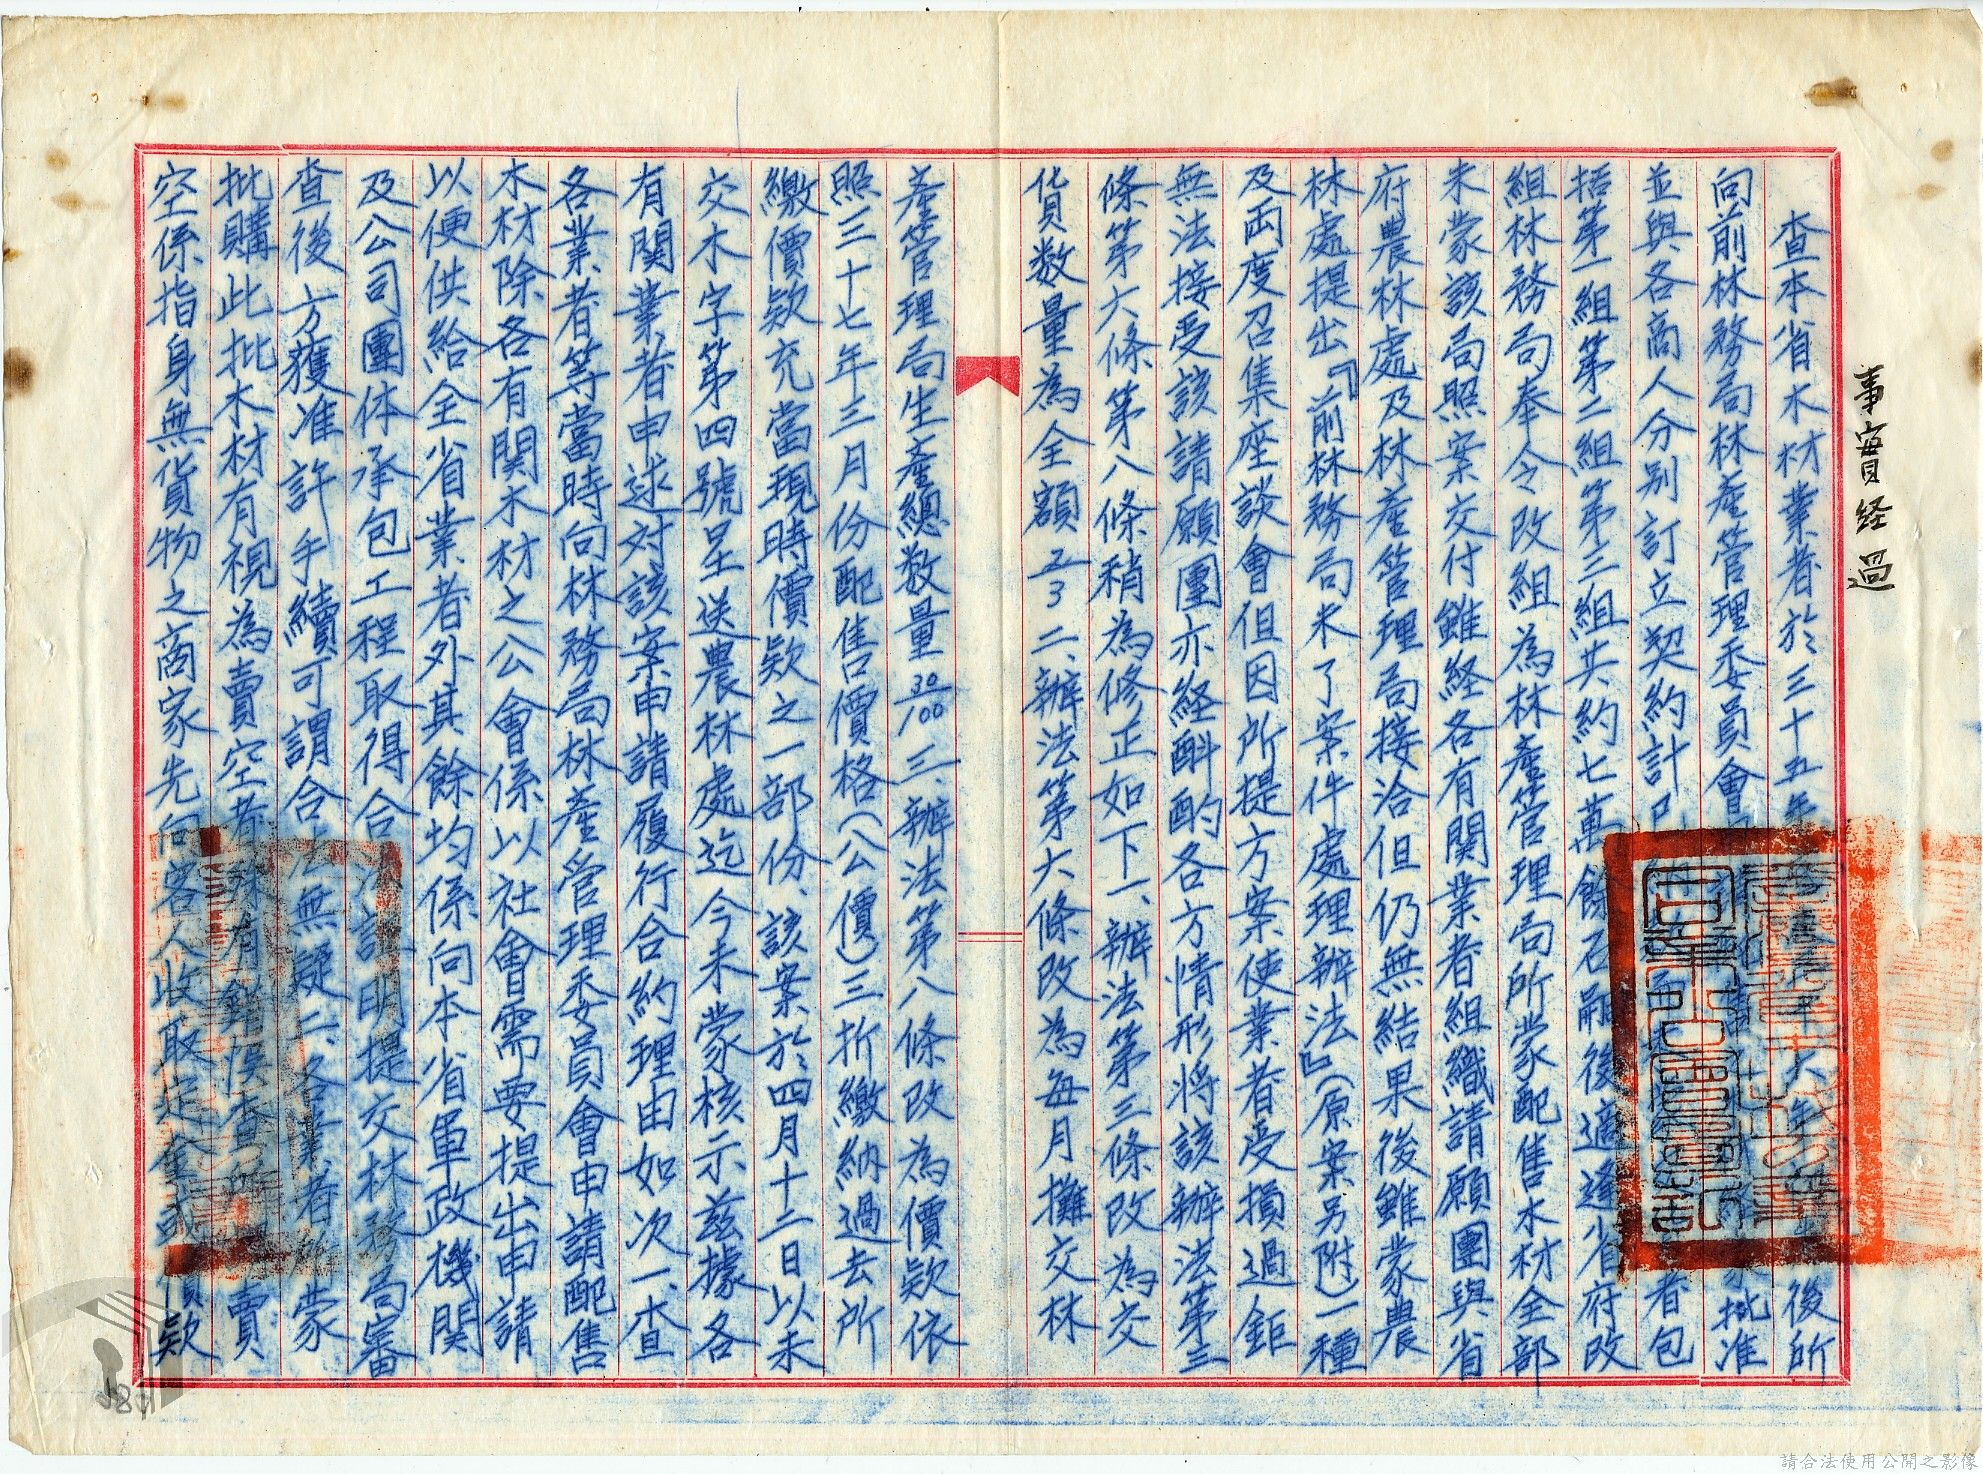 事實経過
查本省木材業者於三十五年
大年
後所
向前林務局林產管理委員會
批准
並與各商人分別訂立契約計
者包
括第一組第二組第三組共約七萬餘石嗣後適逢省府改
組林務局奉令改組為林產管理局所蒙配售木材全部
未蒙該局照案交付雖経各有関業者組織請願團與省
府農林處及林產管理局接洽但仍無結果後雖蒙農
林處提出『前林務局未了案件處理辦法』(原案另附)一種
及両度召集座談會但因所提方案使業者受損過鉅
無法接受該請願團亦経斟酌各方情形将該辦法第三
條第六條第八條稍為修正如下一、辦法第三條改為交
貨数量為全額3/5二、辦法第六條改為每月攤交林
產管理局生產總数量30/100三、辦法第八條改為價欵依
照三十七年三月份配售價格(公價)三折繳納過去所
繳價欵充當現時價欵之一部份、該案於四月十二日以未
交木字第四號呈送農林處迄今未蒙核示茲據各
有関業者申述对該案申請履行合約理由如次一、查
各業者等當時向林務局林產管理委員會申請配售
木材除各有関木材之公會係以社會需要提出申請
以便供給全省業者外其餘均係向本省軍政機関
及公司團体承包工程取得合法証明提交林務局審
查後方獲准許手續可謂合法無疑二、各業者蒙
批購此批木材有視為賣空者殊有錯誤查所賣
空係指身無貨物之商家先向客人收取定金或價欵
請合法使用公開之影像